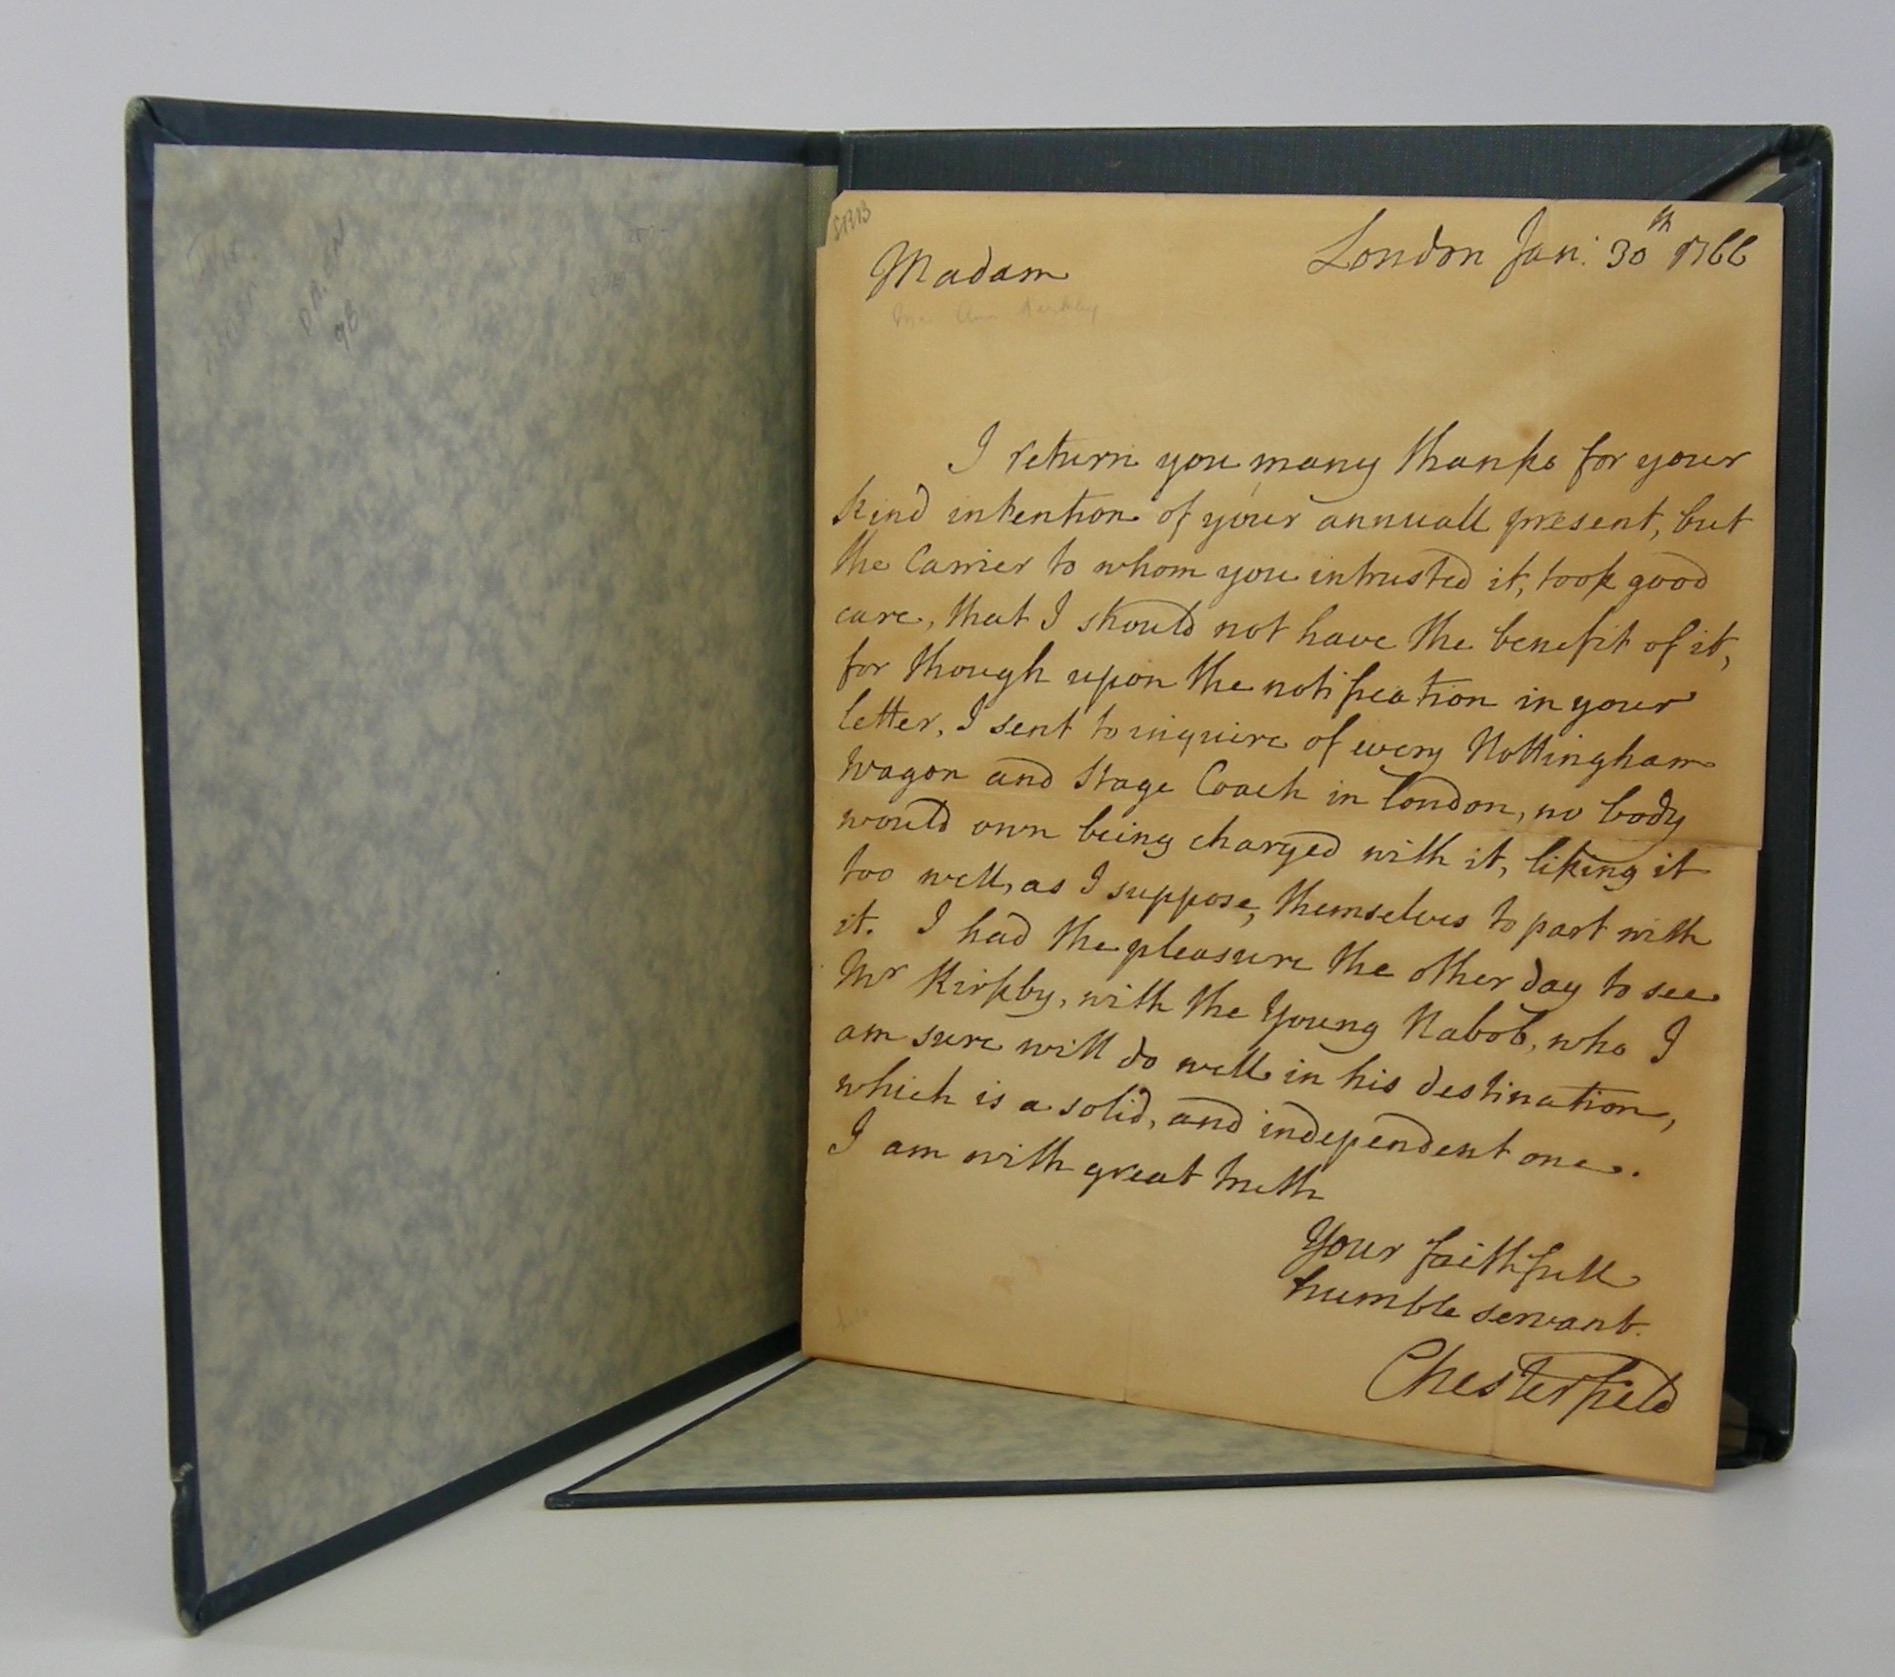 London Jan: 30th 1766
Madam
I return you many thanks for your
kind intention of your annuall present, but
the Carrier to whom you intrusted it, took good
care, that I should not have the benefit of it,
for though upon the notification in your
letter, I sent to inquire of every Nottingham
Wagon and Stage Coach in London, no body
would own being charged with it, liking it
too well, as I suppose, themselves to part with
it. I had the pleasure the other day to see
Mr Kirkby, with the Young Nabob, who I
am sure will do well in his destination,
which is a solid, and independent one.
I am with great truth
Your faithfull
humble servant.
Chesterfield